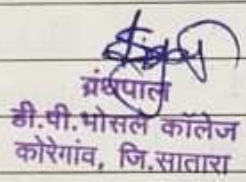 ग्रंथपाल
डी.पी.भोसले कॉलेज
कोरेगांव, जि.सातारा